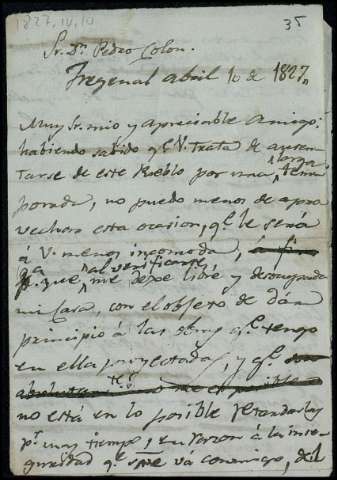 1827, IV, 10
35
Sr. Dn. Pedro Colon.
Fregenal abril 10 de 1827,,
Muy Sr. mio y apreciable Amigo:
habiendo sabido qe. V. trata de ausen
tarse de este Pueblo por una larga tem
porada, no puedo menos de apro
vechar esta ocasion, qe. le será
á V. menos incomoda, á fin
pa. que, al verificarse, me dexe libre y desocupada
mi Casa, con el objeto de dar
principio á las obras qe. tengo
en ella proyectadas, y qe.
no está en lo posible retardarlas
pr. mas tiempo, en razon á la inse
guridad qe. spre. vá conmigo, del